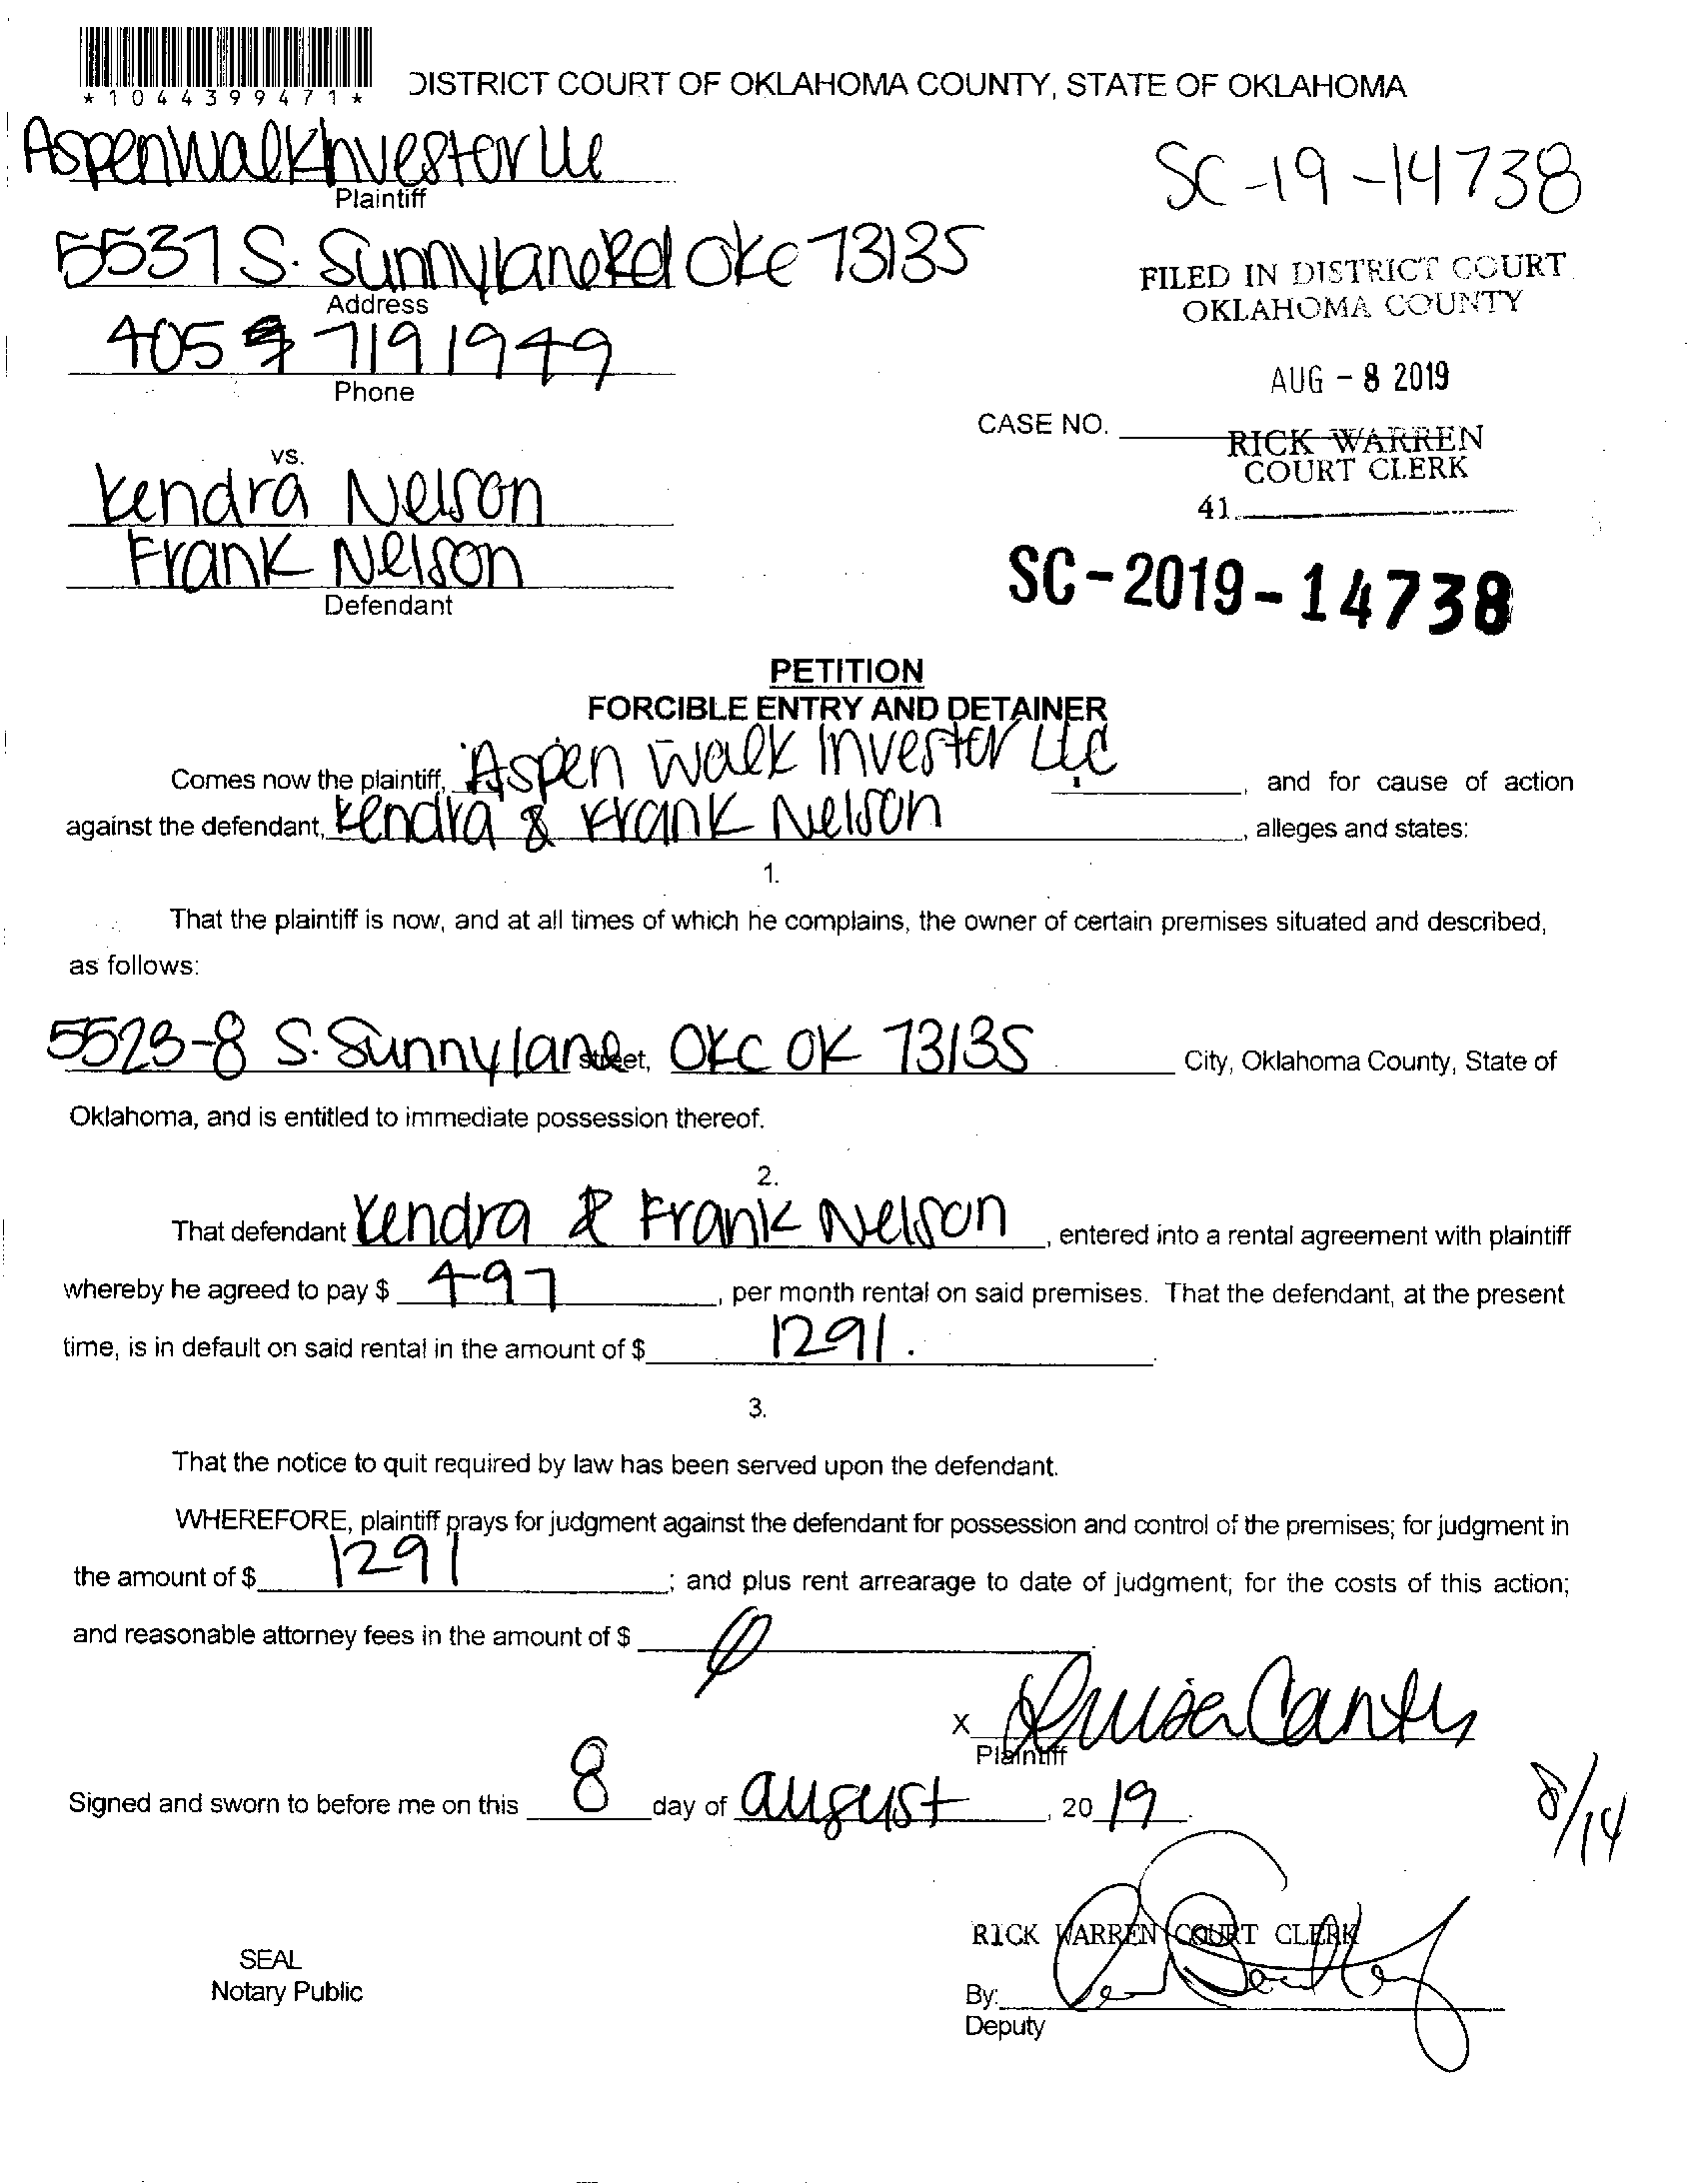 *1044399471*
DISTRICT COURT OF OKLAHOMA COUNTY, STATE OF OKLAHOMA
Aspen Walk Investor LLC
Plaintiff
SC-19-14738
5537 S. Sunnylane Rd OKC 73135
Address
FILED IN DISTRICT COURT
OKLAHOMA COUNTY
405 719 1949
Phone
AUG - 8 2019
CASE NO.
RICK WARREN
COURT CLERK
41
vs.
Kendra Nelson
Frank Nelson
Defendant
SC-2019-14738
PETITION
FORCIBLE ENTRY AND DETAINER
Comes now the plaintiff, Aspen Walk Investor LLC, and for cause of action
against the defendant, Kendra & Frank Nelson, alleges and states:
1.
That the plaintiff is now, and at all times of which he complains, the owner of certain premises situated and described,
as follows:
5523-8 S. Sunnylane street, OKC OK 73135 City, Oklahoma County, State of
Oklahoma, and is entitled to immediate possession thereof.
2.
That defendant Kendra & Frank Nelson, entered into a rental agreement with plaintiff
whereby he agreed to pay $ 497, per month rental on said premises. That the defendant, at the present
time, is in default on said rental in the amount of $ 1291.
3.
That the notice to quit required by law has been served upon the defendant.
WHEREFORE, plaintiff prays for judgment against the defendant for possession and control of the premises; for judgment in
the amount of $ 1291; and plus rent arrearage to date of judgment; for the costs of this action;
and reasonable attorney fees in the amount of $ 0.
X
Plaintiff
Signed and sworn to before me on this 8 day of august, 2019.
8/14
RICK WARREN COURT CLERK
SEAL
Notary Public
By:
Deputy